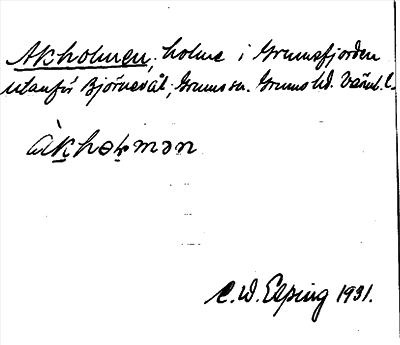 Akholmen, holme i Grumsfjorden
utanför Björnevål, Grums sn. Grums hd. Värml. l.
àk̲hoḷmən
C.W. Elping 1931.